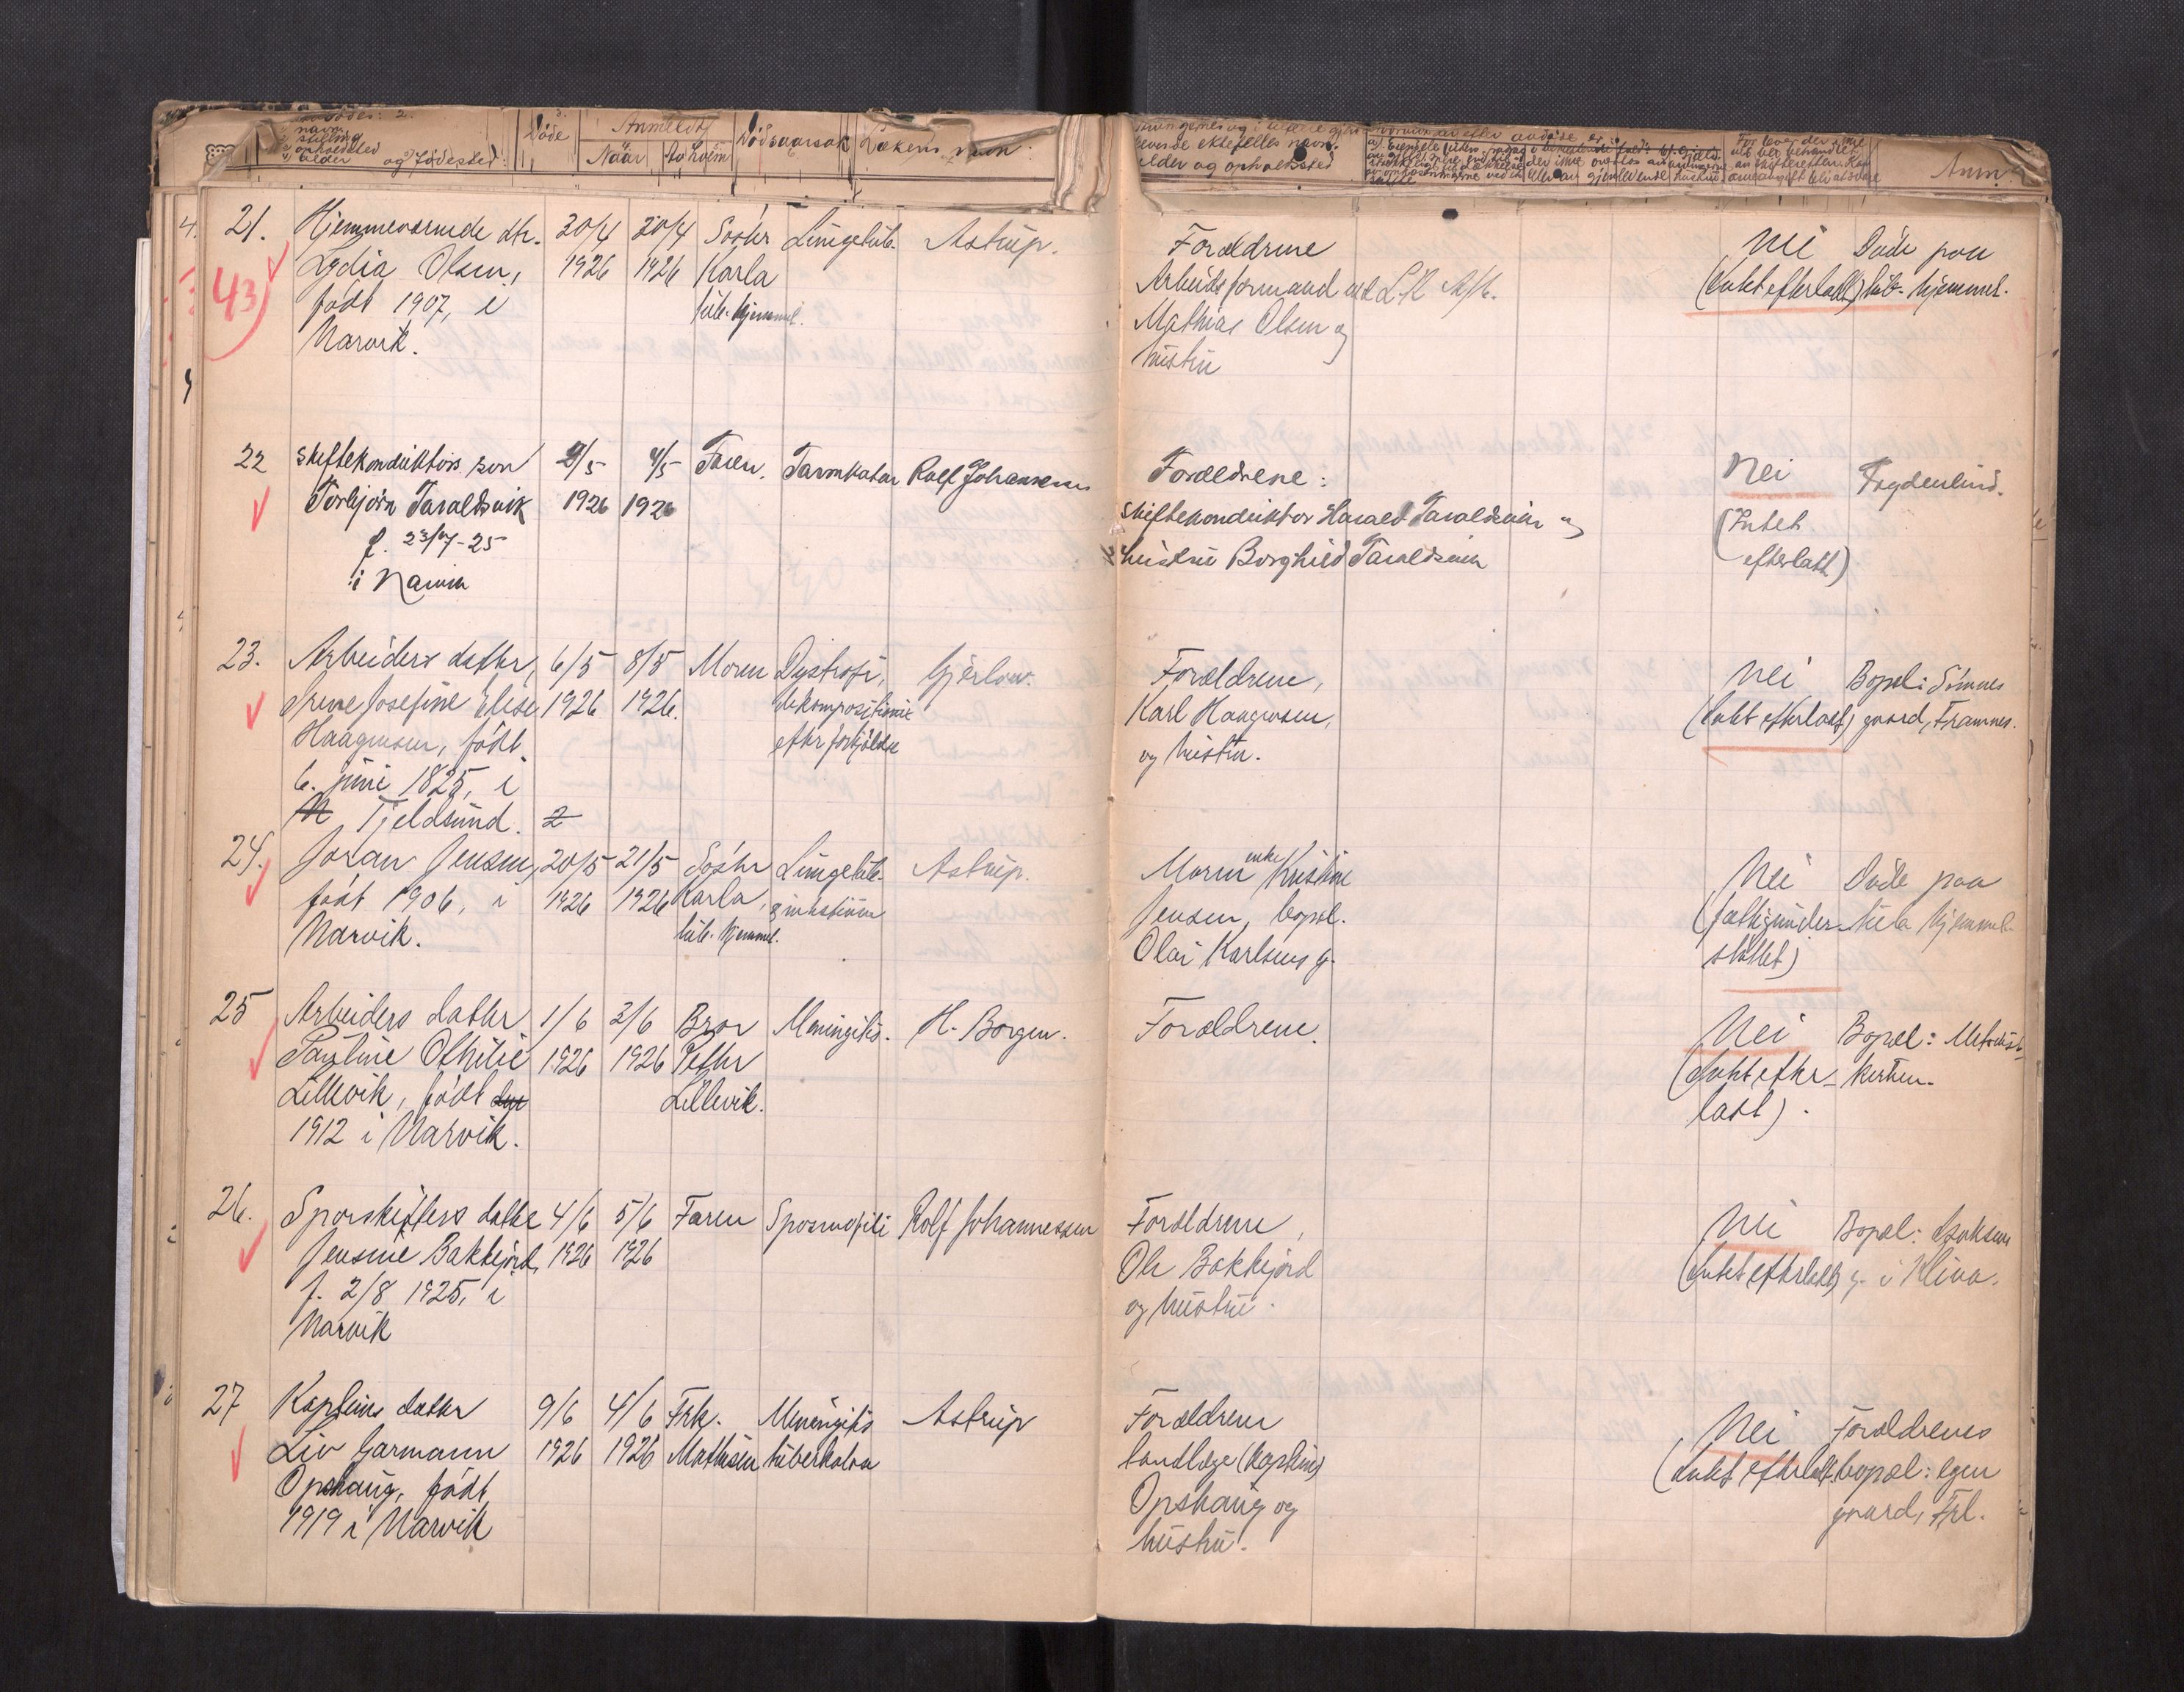 navn
stilling
opholdssted
alder og fødested:
Døde
Anmeldt
Naar
Av hvem
Dødsaarsak
Lækens navn
ektefelles navn,
alder og opholdssted
Anm.
21.
43
Hjemmeværende dtr.
Lydia Olsen,
født 1907, i
Narvik.
20/4
1926
20/4
1926
Søster
Karla
tub. hjemmet.
Lungetub.
Astrup.
Forældrene
Arbeidsformand
Mathias Olsen og
hustru
Nei
(Intet efterlatt)
Døde paa
tub. hjemmet.
22
Skiftekonduktørs søn
Torbjørn Taraldsvik
f. 23/7-25
i Narvik
2/5
1926
4/5
1926
Faren.
Tarmkatar
Rolf Johannessen
Forældrene:
Skiftekonduktør Harald Taraldsvik og
hustru Borghild Taraldsvik
Nei
(Intet
efterlatt)
Frydenlund.
23.
Arbeiders datter,
Irene Josefine Elise
Haagensen, født
6. juni 1825, i
N Tjeldsund.
6/5
1926
2
8/5
1926.
Moren
Dystrofi,
dekomposition
efter forkjølelse
Gjerløw.
Forældrene,
Karl Haagensen,
og hustru.
Nei
(Intet efterlatt)
Bopel: Simnes
gaard, Framnes.
24.
Johan Jensen,
født 1906, i
Narvik.
20/5
1926
21/5
1926
Søster
Karla,
tub. hjemmet.
Lungetub.
& intestinum
Astrup.
Moren enke Kristine
Jensen, bopel.
Olai Karlsens g.
Nei
(fattigunder-
støttet)
Døde paa
tub. hjemmet.
25
Arbeiders datter
Pauline Othilie
Lillevik, født den
1912 i Narvik.
1/6
1926
3/6
1926
Bror
Petter
Lillevik.
Meningitis.
H. Borgen.
Forældrene.
Nei
(Intet efter-
latt).
Bopæl: Metodist-
kirken.
26.
Sporskifters datter
Jensine Bakkejord,
f. 2/8 1925, i
Narvik
4/6
1926
5/6
1926
Faren
Spasmofili
Rolf Johannessen
Forældrene,
Ole Bakkejord
og hustru.
Nei
(Intet efterlatt)
Bopæl: Isaksens
g. i Kleiva.
27
Kapteins datter
Liv Garmann
Opshaug, født
1919 i Narvik
9/6
1926
4/6
1926
Frk.
Mathisen
Meningitis
tuberkulosa
Astrup
Forældrene
tandlæge (kaptein)
Opshaug og
hustru.
Nei
(Intet efterlatt
Forældrenes
bopæl: egen
gaard, Frl.